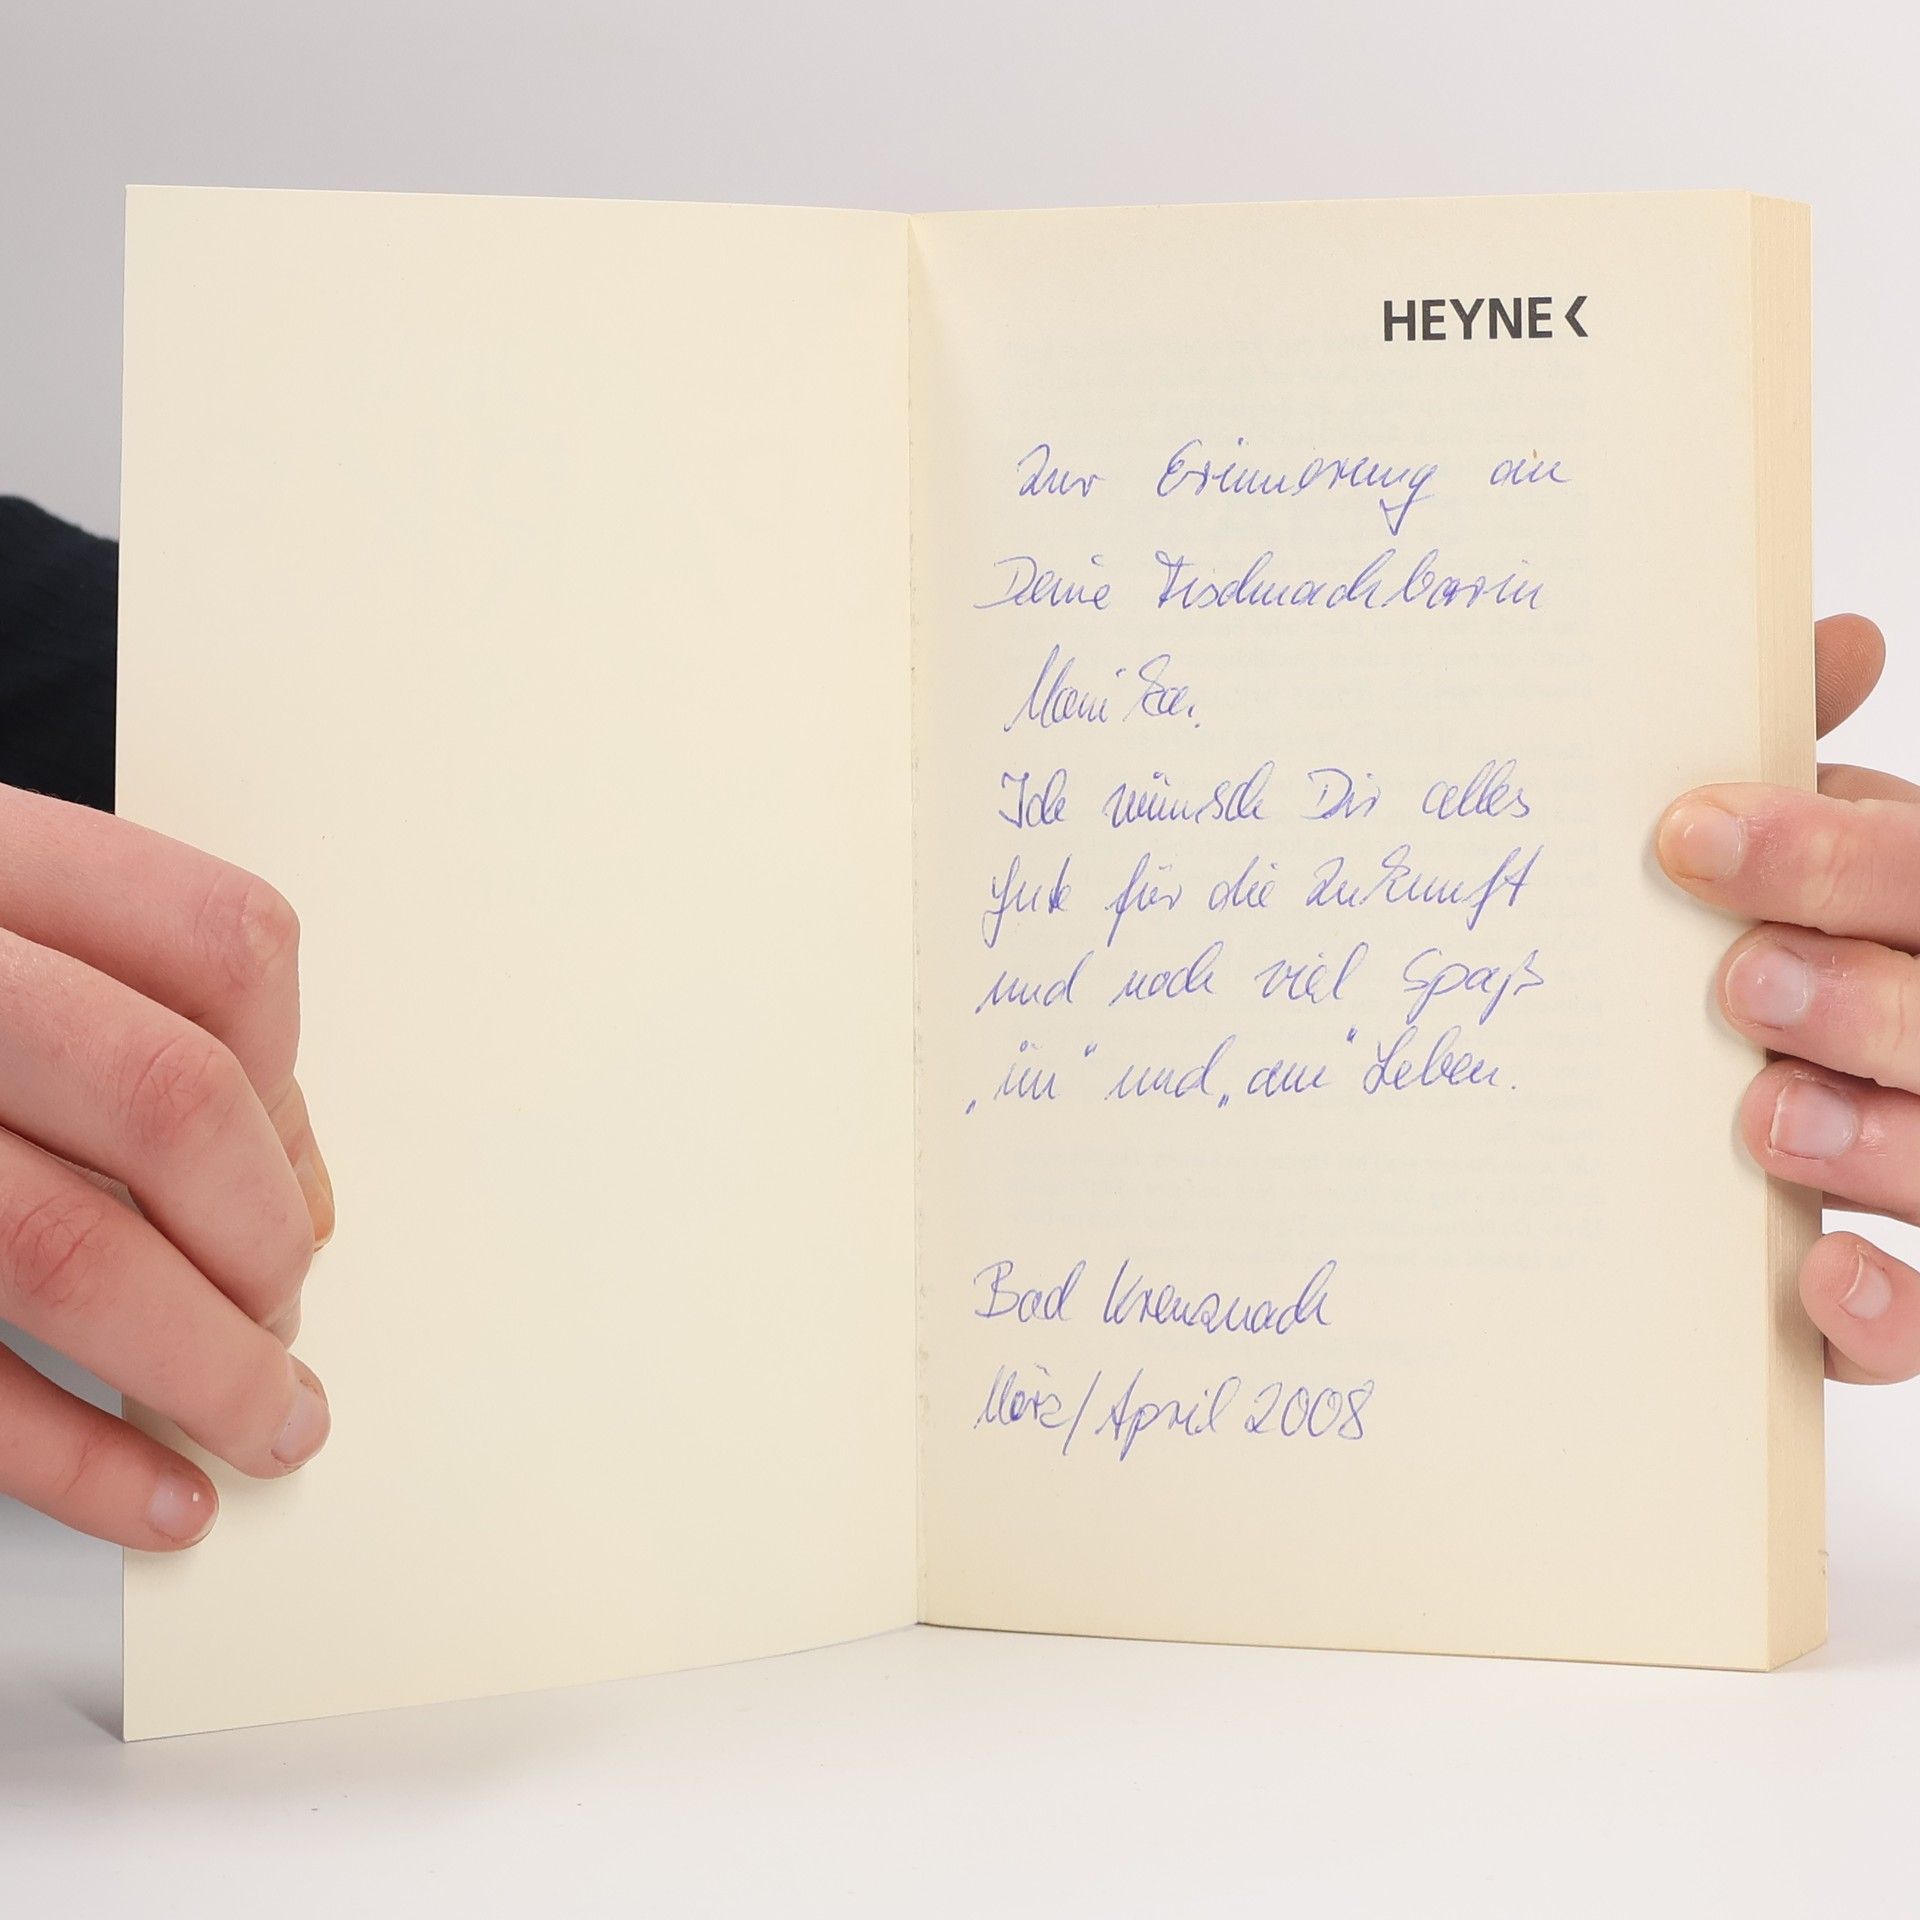 HEYNE<
Zur Erinnerung an
Deine Tischnachbarin
Monika.
Ich wünsch Dir alles
Gute für die Zukunft
und noch viel Spaß
„im" und „am" Leben.
Bad Kreuznach
März/April 2008